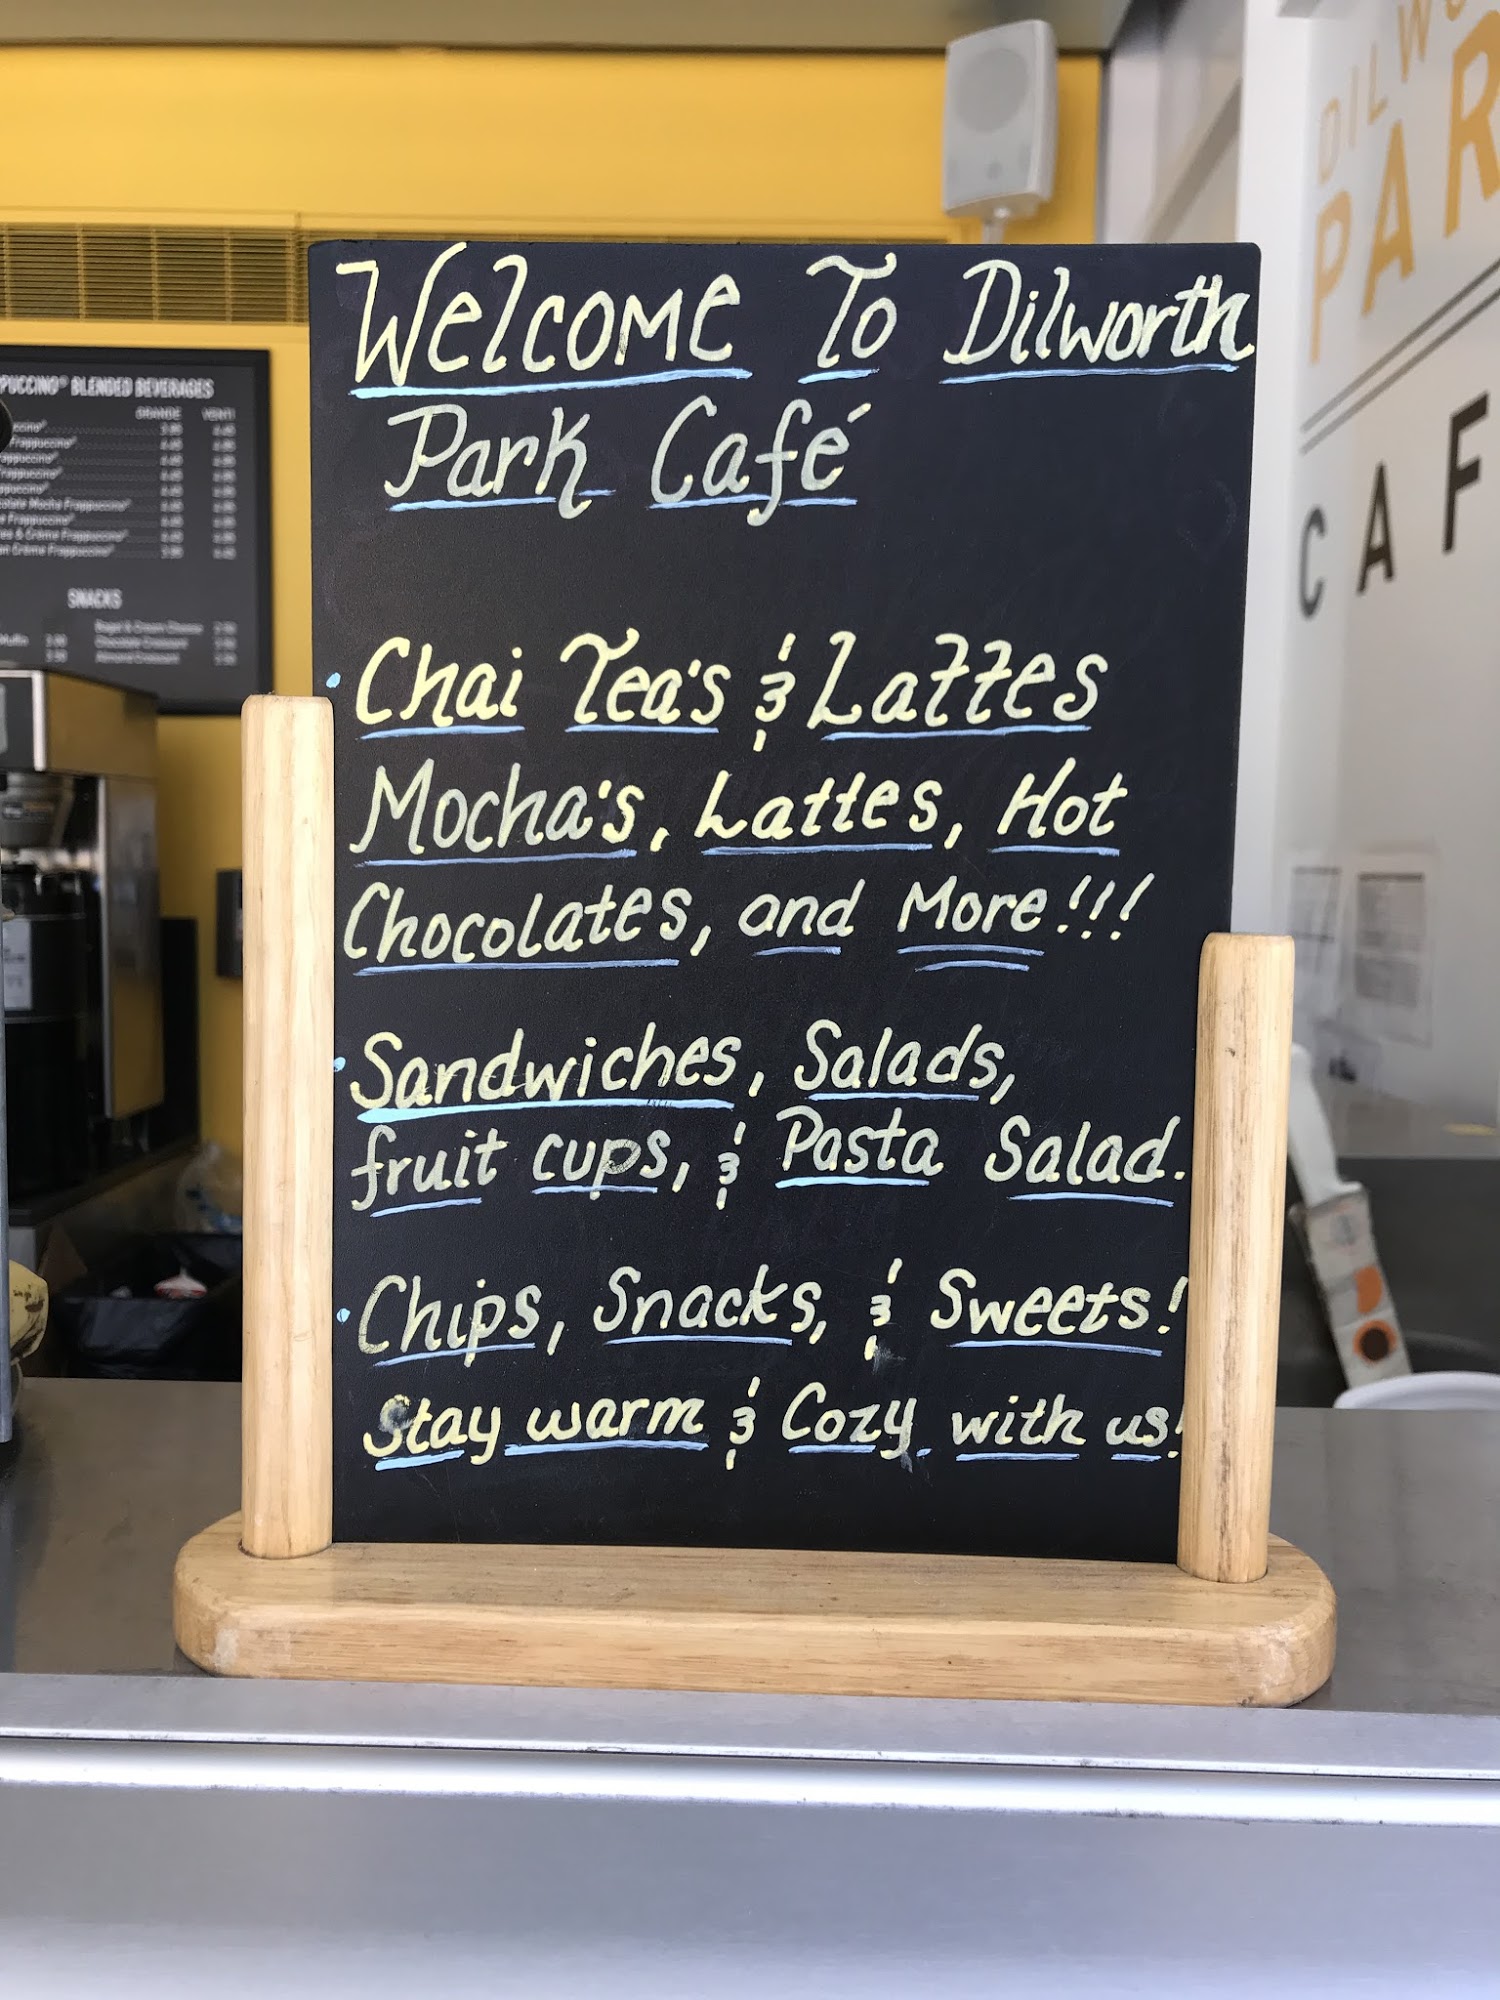 Welcome To Dilworth
Park Café
Chai Tea's & Lattes
Mocha's, Lattes, Hot
Chocolates, and More!!!
Sandwiches, Salads,
fruit cups, & Pasta Salad.
Chips, Snacks, & Sweets!
Stay warm & Cozy with us!
PUCCINO® BLENDED BEVERAGES
GRANDE VENTI
SNACKS
Bagel & Cream Cheese
Chocolate Croissant
Almond Croissant
DILWO
PAR
CAF